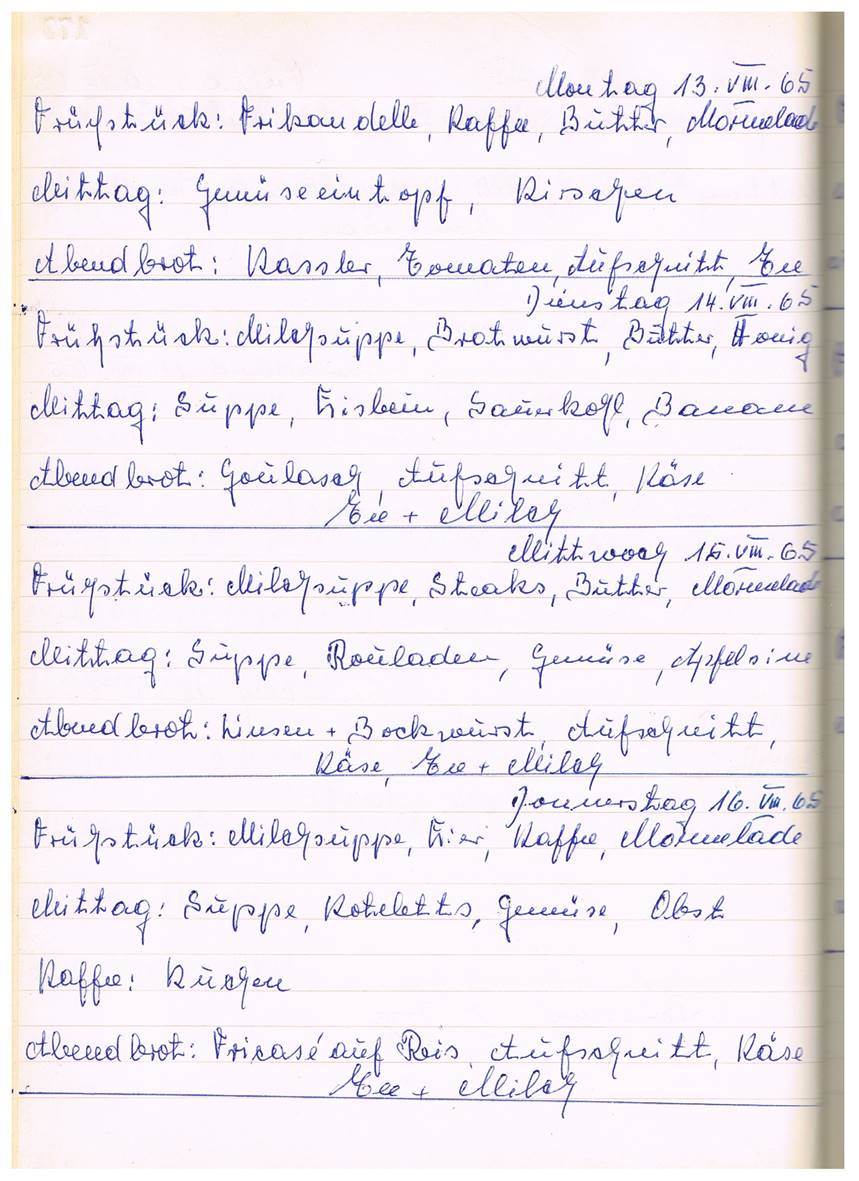 Montag 13. VIII. 65
Frühstück: Frikandelle, Kaffee, Butter, Marmelade
Mittag: Gemüseeintopf, Kirschen
Abendbrot: Kassler, Tomaten, Aufschnitt, Tee
Dienstag 14. VIII. 65
Frühstück: Milchsuppe, Bratwurst, Butter, Honig
Mittag: Suppe, Eisbein, Sauerkohl, Banane
Abendbrot: Goulasch, Aufschnitt, Käse
Tee + Milch
Mittwoch 15. VIII. 65
Frühstück: Milchsuppe, Steaks, Butter, Marmelade
Mittag: Suppe, Rouladen, Gemüse, Apfelsine
Abendbrot: Linsen + Bockwurst, Aufschnitt,
Käse, Tee + Milch
Donnerstag 16. VIII. 65
Frühstück: Milchsuppe, Eier, Kaffee, Marmelade
Mittag: Suppe, Koteletts, Gemüse, Obst
Kaffee: Kuchen
Abendbrot: Fricasé auf Reis, Aufschnitt, Käse
Tee + Milch